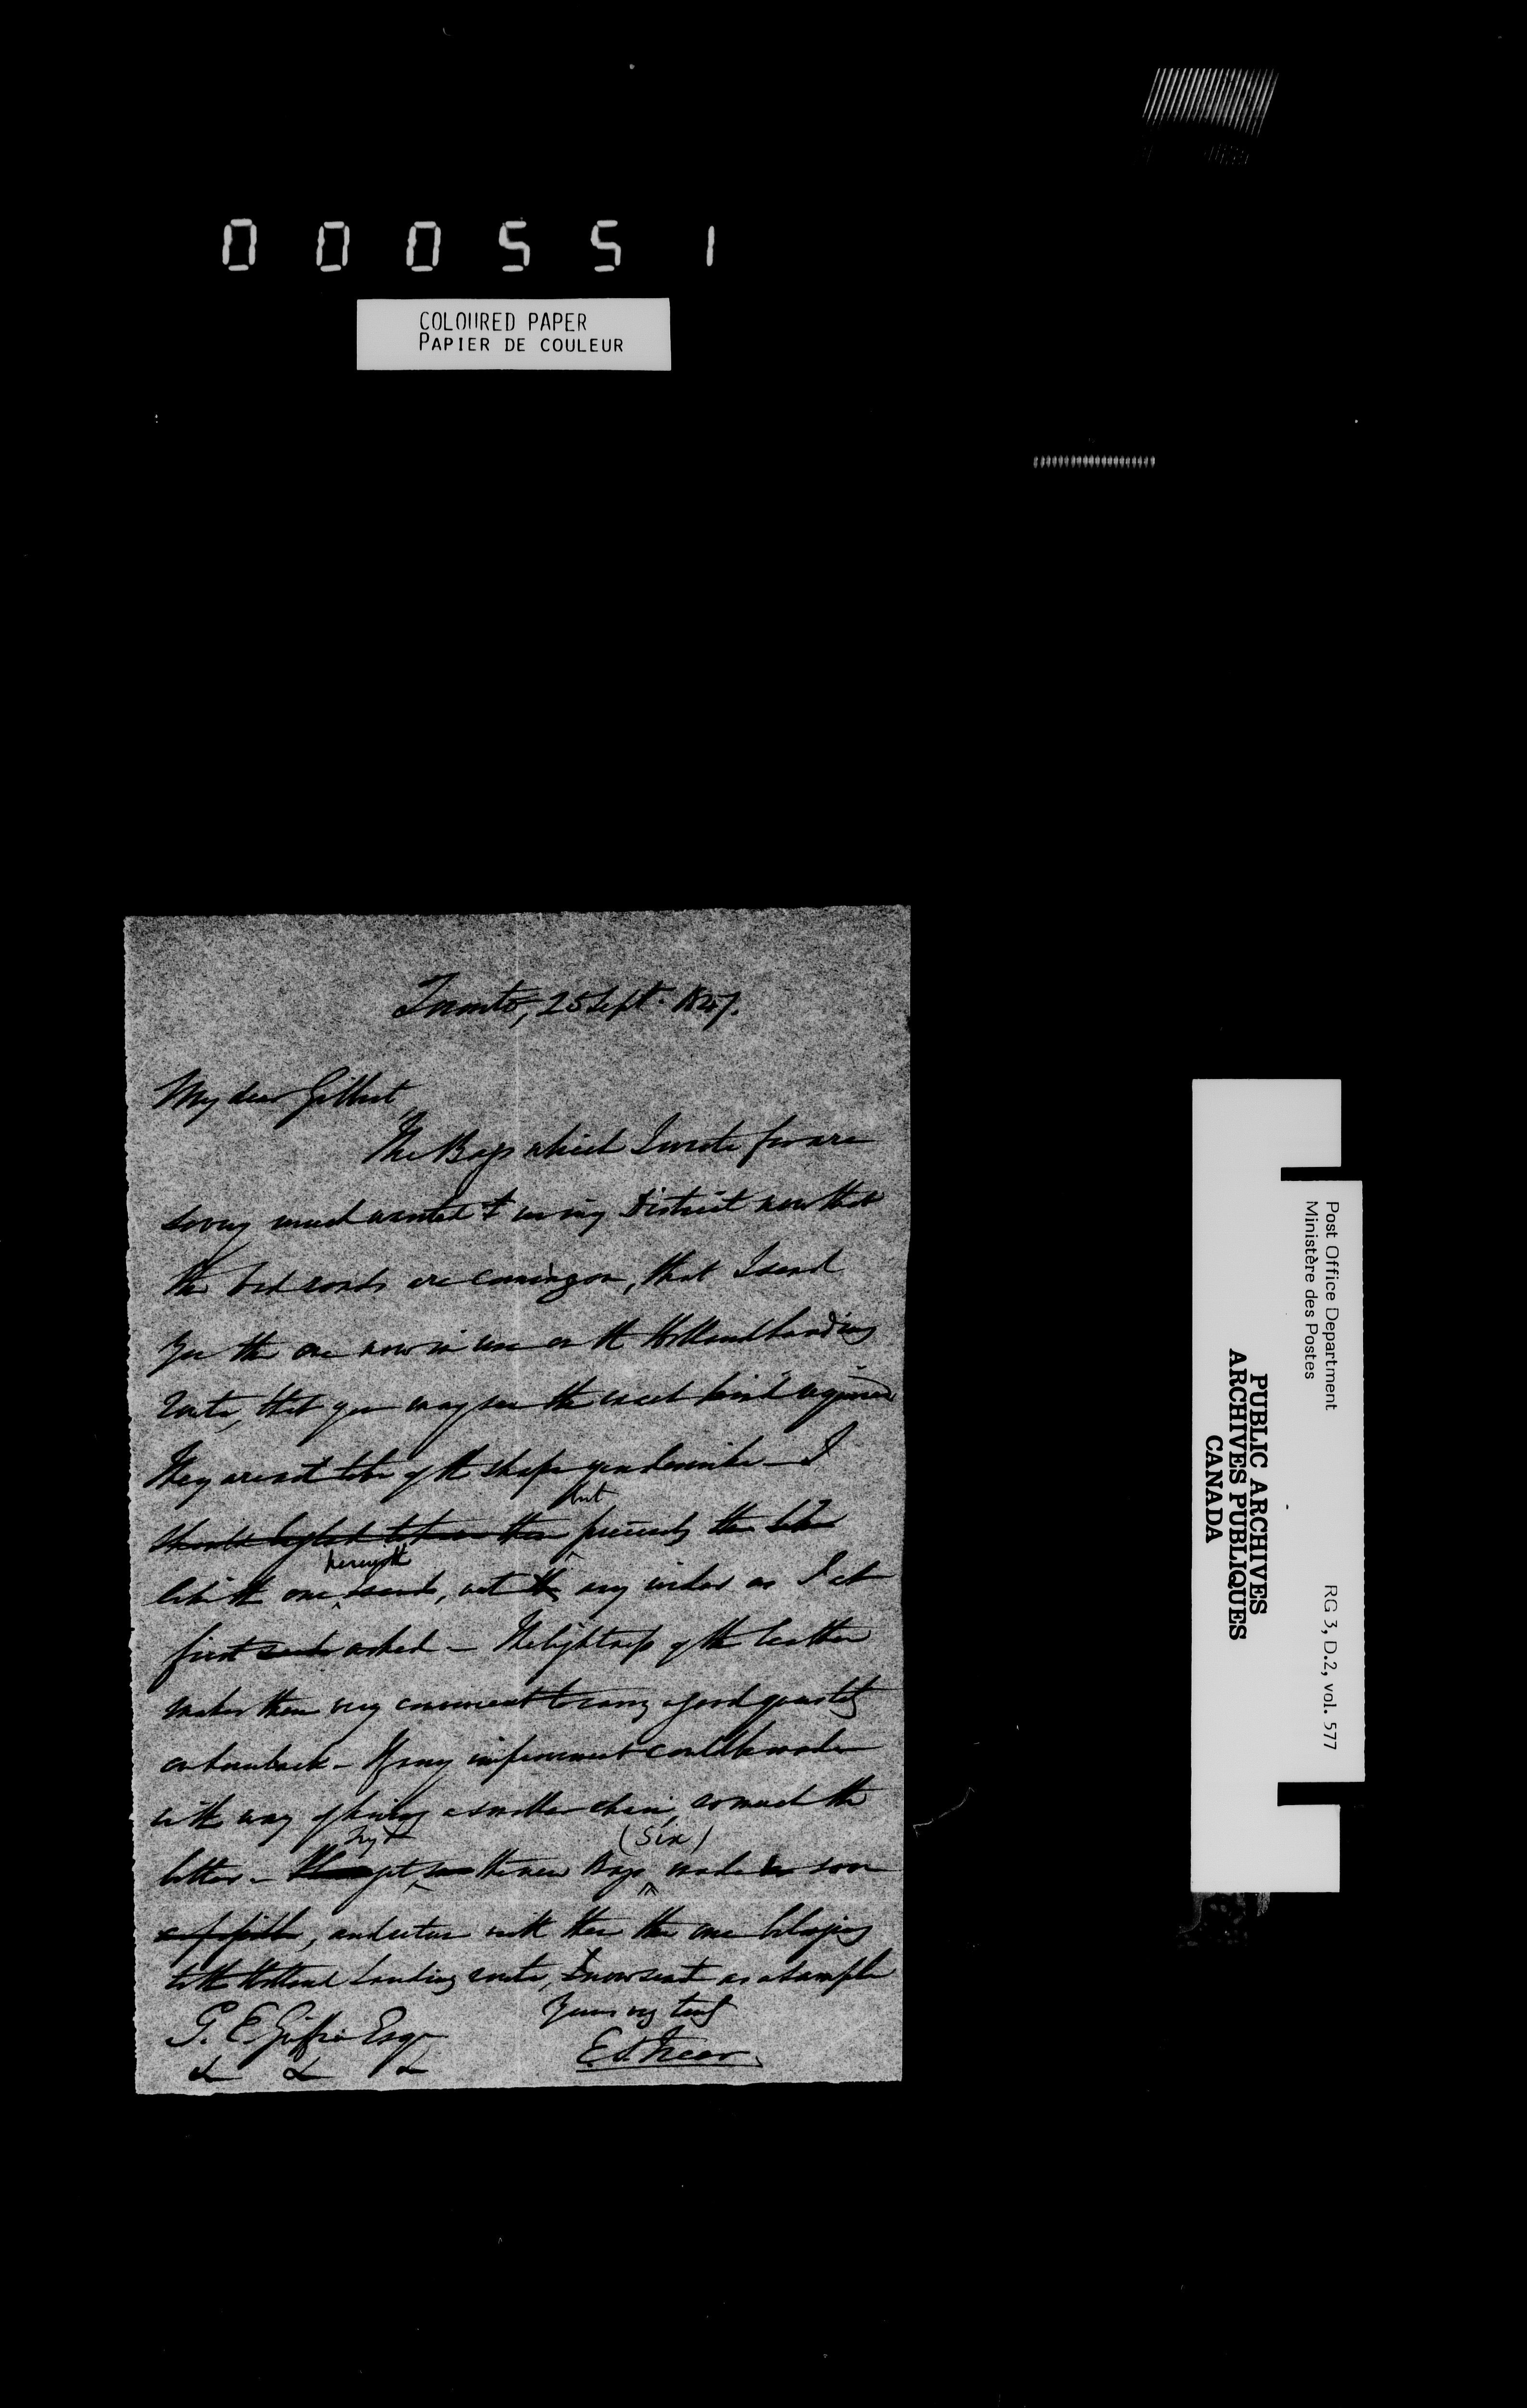 000551
COLOURED PAPER
PAPIER DE COULEUR
Toronto, 25 Sept. 1847.
My dear Gilbert
The Bags which I wrote for are
so very much wanted in my District now that
the bad roads are coming on, that I send
you the one now in use on the Holland Landing
route, that you may see the exact kind required
They are not to be of the shape you describe – I
but
precisely the
herewith
like the one, not any wider as I at
first asked – The lightness of the leather
makes them very convenient to carry a good quantity
on horseback – If any improvement could be made
in the way of having a smaller chain, so much the
Try &
(six)
better – get the new Bags made soon
, and return with them the one belonging
to the Holland Landing route, now sent as a sample
Yours very truly
G. E. Griffin Esqr
E.S. Freer
& & &
Post Office Department
Ministère des Postes
RG 3, D.2, vol. 577
PUBLIC ARCHIVES
ARCHIVES PUBLIQUES
CANADA